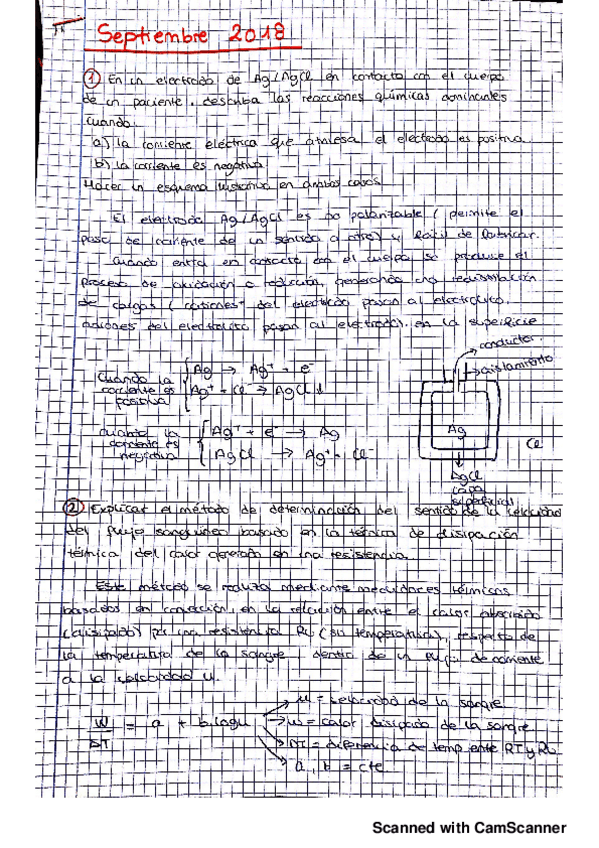 Septiembre 2018
① En un electrodo de Ag/AgCl en contacto con el cuerpo
de un paciente, describa las reacciones químicas dominantes
cuando:
a) la corriente eléctrica que atraviesa el electrodo es positiva
b) la corriente es negativa
Hacer un esquema ilustrativo en ambos casos
El electrodo Ag/AgCl es no polarizable (permite el
paso de corriente de un sentido a otro) y fácil de fabricar.
Cuando entra en contacto con el cuerpo se produce el
proceso de oxidación o reducción, generando una redistribución
de cargas (cationes del electrodo pasan al electrolito,
aniones del electrolito pasan al electrodo), en la superficie
conductor
aislamiento
Cuando la corriente es positiva
Ag → Ag⁺ + e⁻
Ag⁺ + Cl⁻ → AgCl ↓
cuando la corriente es negativa
Ag⁺ + e⁻ → Ag
AgCl → Ag⁺ + Cl⁻
Ag
Cl
AgCl
capa
superficial
② Explicar el método de determinación del sentido de la velocidad
del flujo sanguíneo basado en la técnica de disipación
térmica del calor generado en una resistencia.
Este método se realiza mediante medidores térmicos
basados en convección, en la relación entre el calor absorbido
(disipado) por una resistencia Ru (su temperatura), respecto de
la temperatura de la sangre, dentro de un flujo de corriente
a la velocidad u.
W/ΔT = a + b.logu
u = velocidad de la sangre
w = calor disipado de la sangre
ΔT = diferencia de temp entre RT y Ru
a, b = cte
Scanned with CamScanner